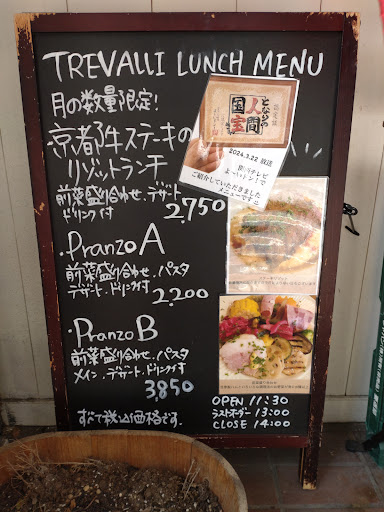 TREVALLI LUNCH MENU
月の数量限定!
京都牛ステーキの
リゾットランチ
前菜盛り合わせ、デザート
ドリンク付
2,750
・Pranzo A
前菜盛り合わせ、パスタ
デザート、ドリンク付
2,200
・Pranzo B
前菜盛り合わせ、パスタ
メイン、デザート、ドリンク付
3,850
すべて税込価格です。
となりの
人間
国宝
2024.3.22 放送
関西テレビ
よ〜いドン!で
ご紹介していただきました
メニューです
OPEN 11:30
ラストオーダー 13:00
CLOSE 14:00